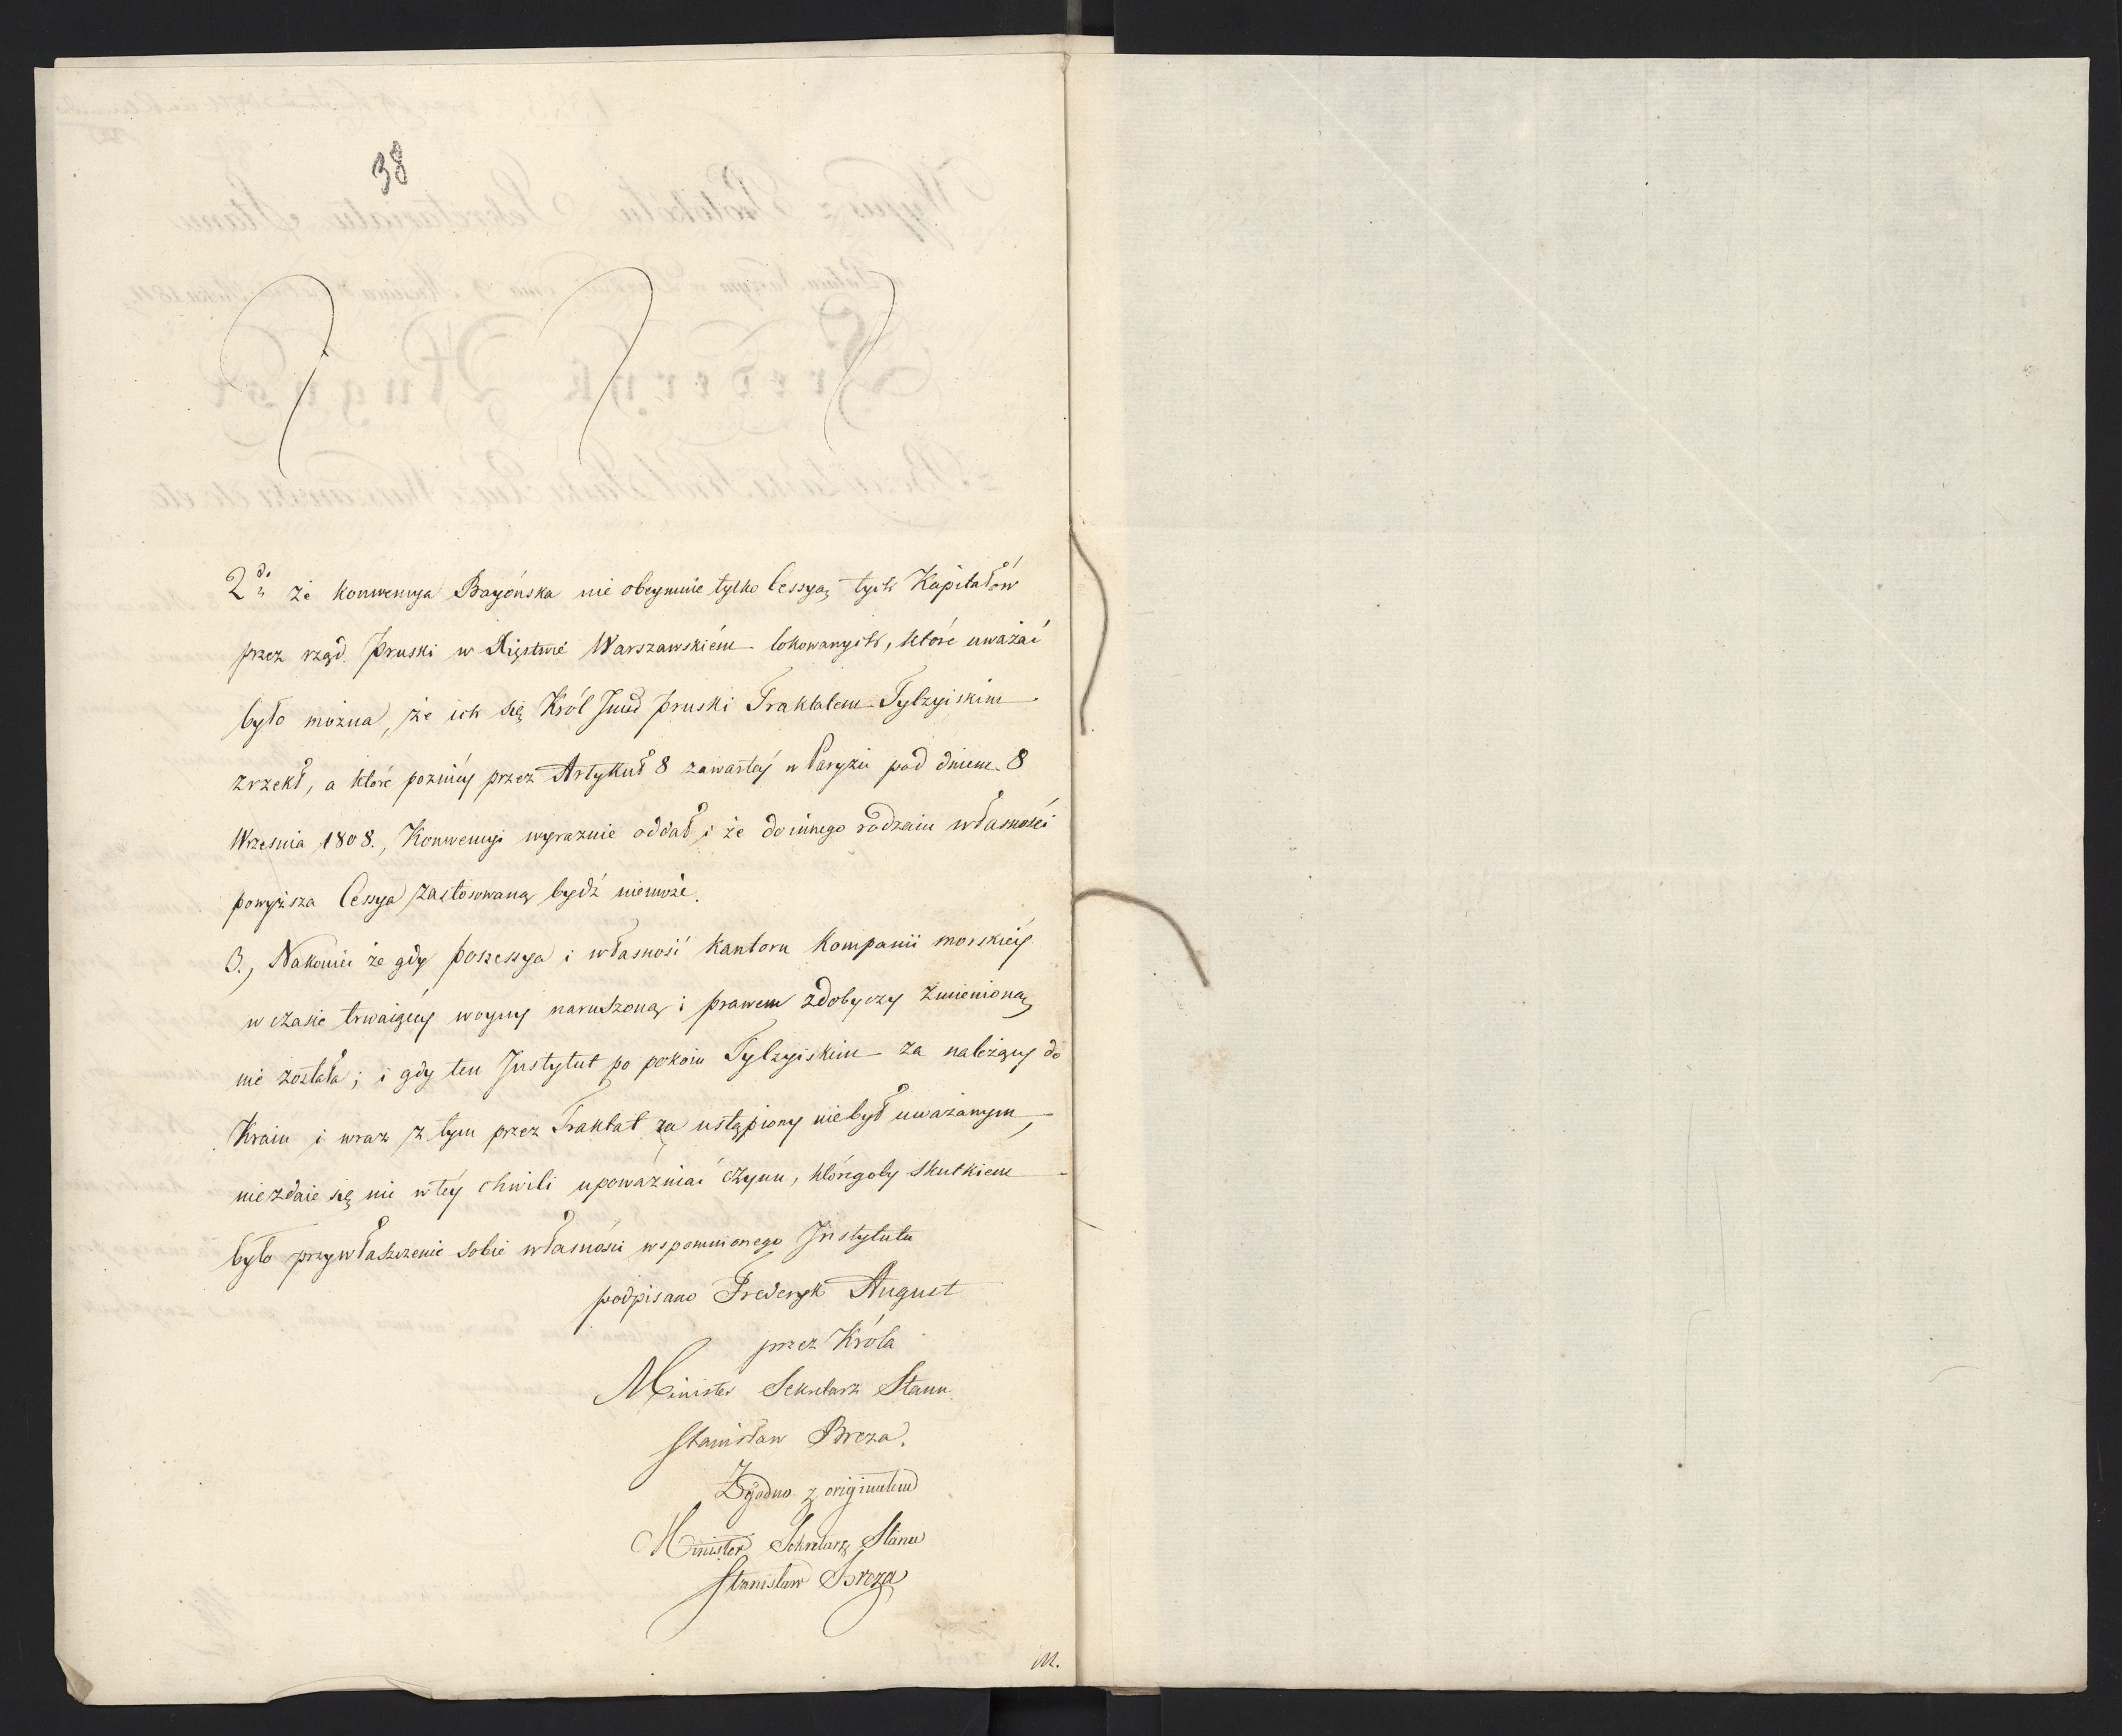 38
2do że konwencya Bayońska nie obeymuie tylko Cessyą tych Kapitałów
przez rząd Pruski w Xięstwie Warszawskiém lokowanych, które uważać
było można, że ich się Król Jmć pruski Traktatem Tylzyiskim
zrzekł, a które pozniéy przez Artykuł 8 zawartéy w Paryżu pod dniem 8
Września 1808., Konwencyi wyraznie oddał, i że do innego rodzaiu własności
powyższa Cessya zastosowaną bydź niemoże.
3., Nakoniec że gdy possessya i własność Kantoru Kompanii morskiéy
w czasie trwaiącéy woyny naruszoną i prawem zdobyczy zmienioną
nie została; i gdy ten Instytut po pokoiu Tylzyiskim za należący do
Kraiu i wraz z tym przez Traktat za ustąpiony niebył uważanym,
niezdaie się nic w téy chwili upoważniać czynu, któregoby skutkiem
było przywłaszczenie sobie własności wspomnionego Instytutu
podpisano Frederyk August
przez Króla
Minister Sekretarz Stanu
Stanisław Breza.
Zgodno z originałem
Minister Sekretarz Stanu
Stanisław Breza
M.